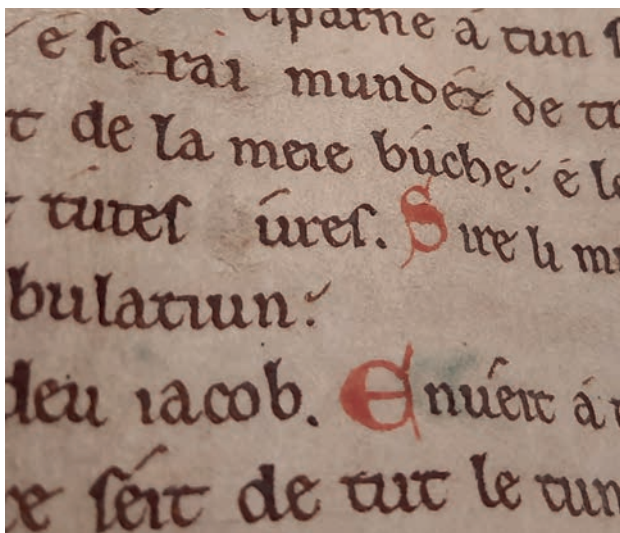 ciparne á tun s
e se rai mundéz de tr
t de la meie búche: é le
tútes úres. Sire li mu
bulatiun:
deu iacob. Enuéit á t
ce séit de tut le tun